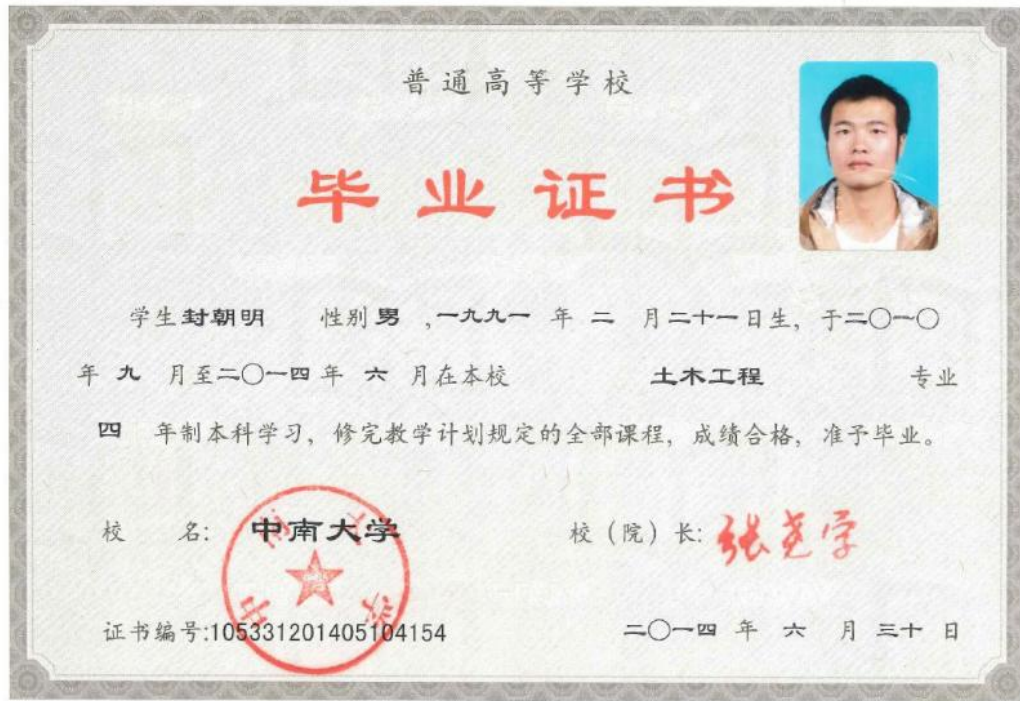 普通高等学校
毕业证书
学生封朝明 性别男,一九九一年二月二十一日生,于二〇一〇
年九月至二〇一四年六月在本校 土木工程 专业
四年制本科学习,修完教学计划规定的全部课程,成绩合格,准予毕业。
校 名: 中南大学 校(院)长: 张尧学
中南大学
证书编号:105331201405104154 二〇一四年六月三十日